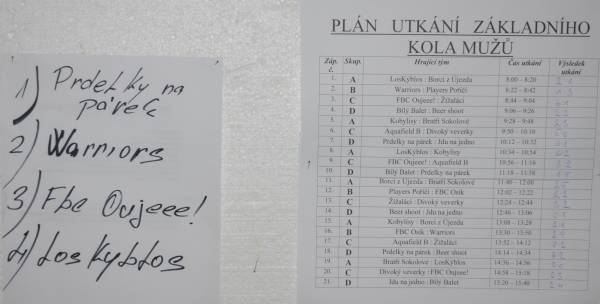 1) Prdelky na
párek
2) Warriors
3) Fbc Oujeee!
4) LosKyblos
PLÁN UTKÁNÍ ZÁKLADNÍHO
KOLA MUŽŮ
Záp. č. Skup. Hrající tým Čas utkání Výsledek utkání
1. A LosKýblos : Borci z Újezda 8:00 – 8:20
2. B Warriors : Players Poříčí 8:22 – 8:42
3. C FBC Oujeee! : Žížaláci 8:44 – 9:04
4. D Bílý Balet : Beer shoot 9:06 – 9:26
5. A Kobylisy : Bratři Sokolové 9:28 – 9:48
6. C Aquafield B : Divoký veverky 9:50 – 10:10
7. D Prdelky na párek : Jdu na jedno 10:12 – 10:32
8. A LosKýblos : Kobylisy 10:34 – 10:54
9. C FBC Oujeee! : Aquafield B 10:56 – 11:16
10. D Bílý Balet : Prdelky na párek 11:18 – 11:38
11. A Borci z Újezda : Bratři Sokolové 11:40 – 12:00
12. B Players Poříčí : FBC Osik 12:02 – 12:22
13. C Žížaláci : Divoký veverky 12:24 – 12:44
14. D Beer shoot : Jdu na jedno 12:46 – 13:06
15. A Kobylisy : Borci z Újezda 13:08 – 13:28
16. B FBC Osik : Warriors 13:30 – 13:50
17. C Aquafield B : Žížaláci 13:52 – 14:12
18. D Prdelky na párek : Beer shoot 14:14 – 14:34
19. A Bratři Sokolové : LosKýblos 14:36 – 14:56
20. C Divoký veverky : FBC Oujeee! 14:58 – 15:18
21. D Jdu na jedno : Bílý Balet 15:20 – 15:40